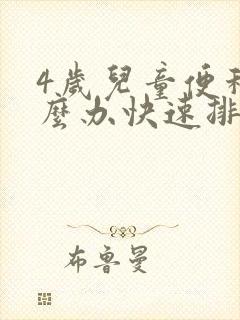 4歲兒童便秘
麼办快速排
布魯曼